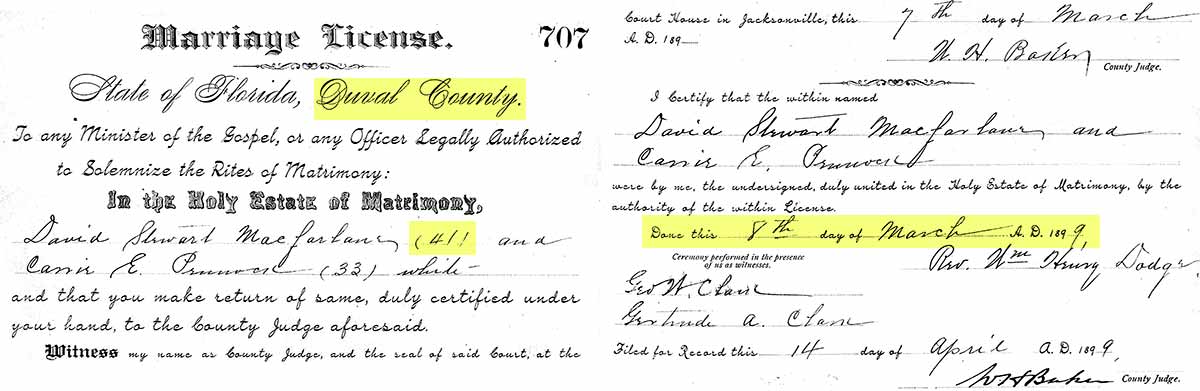 Marriage License. 707
State of Florida, Duval County.
To any Minister of the Gospel, or any Officer Legally Authorized
to Solemnize the Rites of Matrimony:
In the Holy Estate of Matrimony,
David Stewart MacFarlane (41) and
Carrie E. Pennock (33) white
and that you make return of same, duly certified under
your hand, to the County Judge aforesaid.
Witness my name as County Judge, and the seal of said Court, at the
Court House in Jacksonville, this 7th day of March
A. D. 189
W. H. Baker
County Judge.
I Certify that the within named
David Stewart MacFarlane and
Carrie E. Pennock
were by me, the undersigned, duly united in the Holy Estate of Matrimony, by the
authority of the within License.
Done this 8th day of March A. D. 1899,
Ceremony performed in the presence
of us as witnesses.
Rev. Wm. Henry Dodge
Geo W. Clark
Gertrude A. Clark
Filed for Record this 14 day of April A. D. 1899,
W H Baker County Judge.